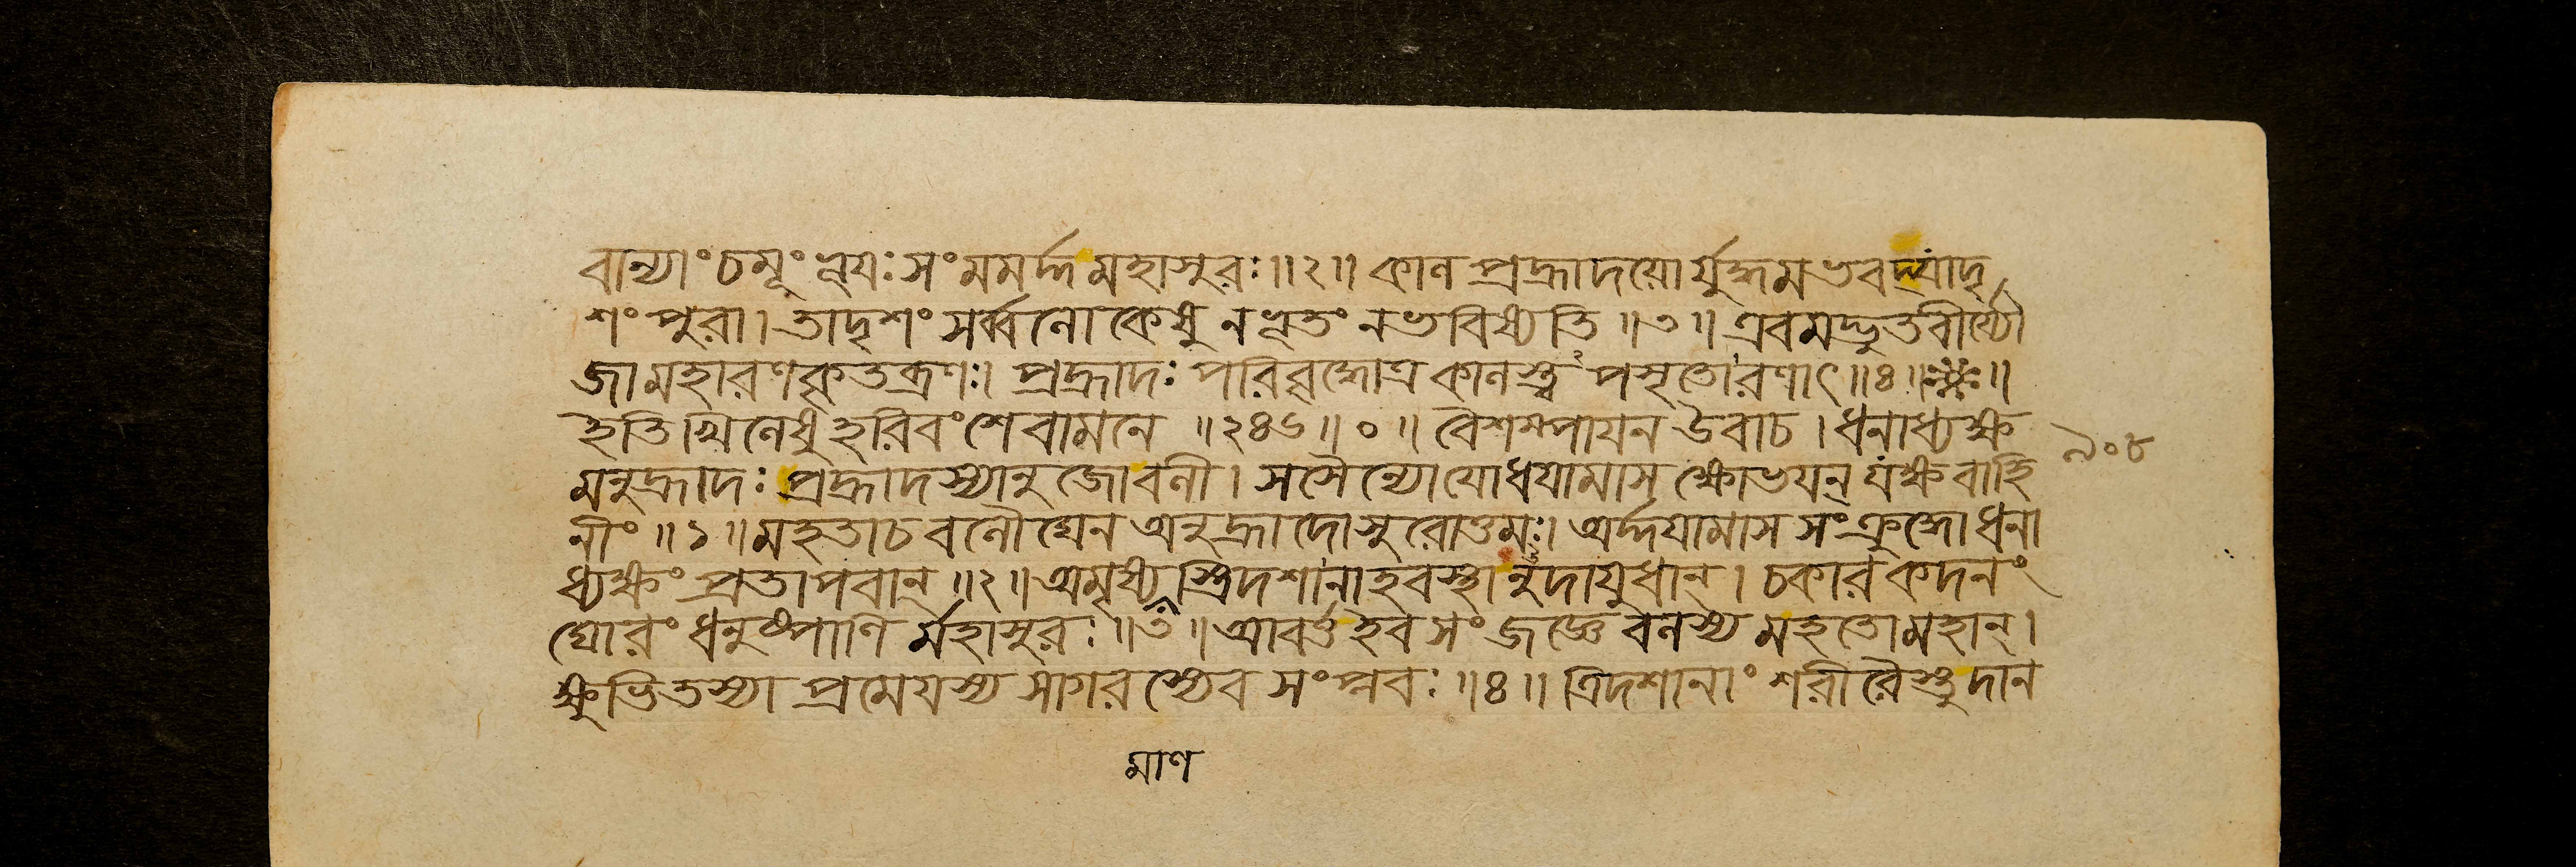 বান্যাং চমূং ভূয়ঃ সংমমর্দ্দ মহাসুরঃ॥২॥ কাল প্রহ্লাদয়োর্যুদ্ধমভবদ্যাদৃ
শং পুরা। তাদৃশং সর্ব্বলোকেষু ন ভূতং ন ভবিষ্যতি॥৩॥ এবমদ্ভুতবীর্য্যৌ
জা মহারণকৃতব্রণঃ। প্রহ্লাদঃ পরিবৃদ্ধোত্র কালস্তু পসৃতোরণাৎ॥৪॥
ইতি খিলেষু হরিবংশে বামনে ॥২৪৬॥০॥ বৈশম্পায়ন উবাচ। ধনাধ্যক্ষ
মনুহ্লাদঃ প্রহ্লাদস্যানুজো বলী। সসৈন্যো যোধয়ামাস ক্ষোভয়ন্ যক্ষবাহি
নীং॥১॥ মহতা চ বলৌঘেন অনুহ্লাদোসুরোত্তমঃ। অর্দ্দয়ামাস সংক্রুদ্ধো ধনা
ধ্যক্ষং প্রতাপবান্॥২॥ অমৃষ্য ত্রিদশানাহবস্থানুদায়ুধান্। চকার কদনং
ঘোরং ধনুষ্পাণির্মহাসুরঃ॥৩॥ আবর্ত্ত ইব সংজজ্ঞে বলস্য মহতো মহান্।
ক্ষুভিতস্যাপ্রমেয়স্য সাগরস্যেব সংপ্লবঃ॥৪॥ ত্রিদশানাং শরীরৈস্তু দান
৯০৮
মাণ